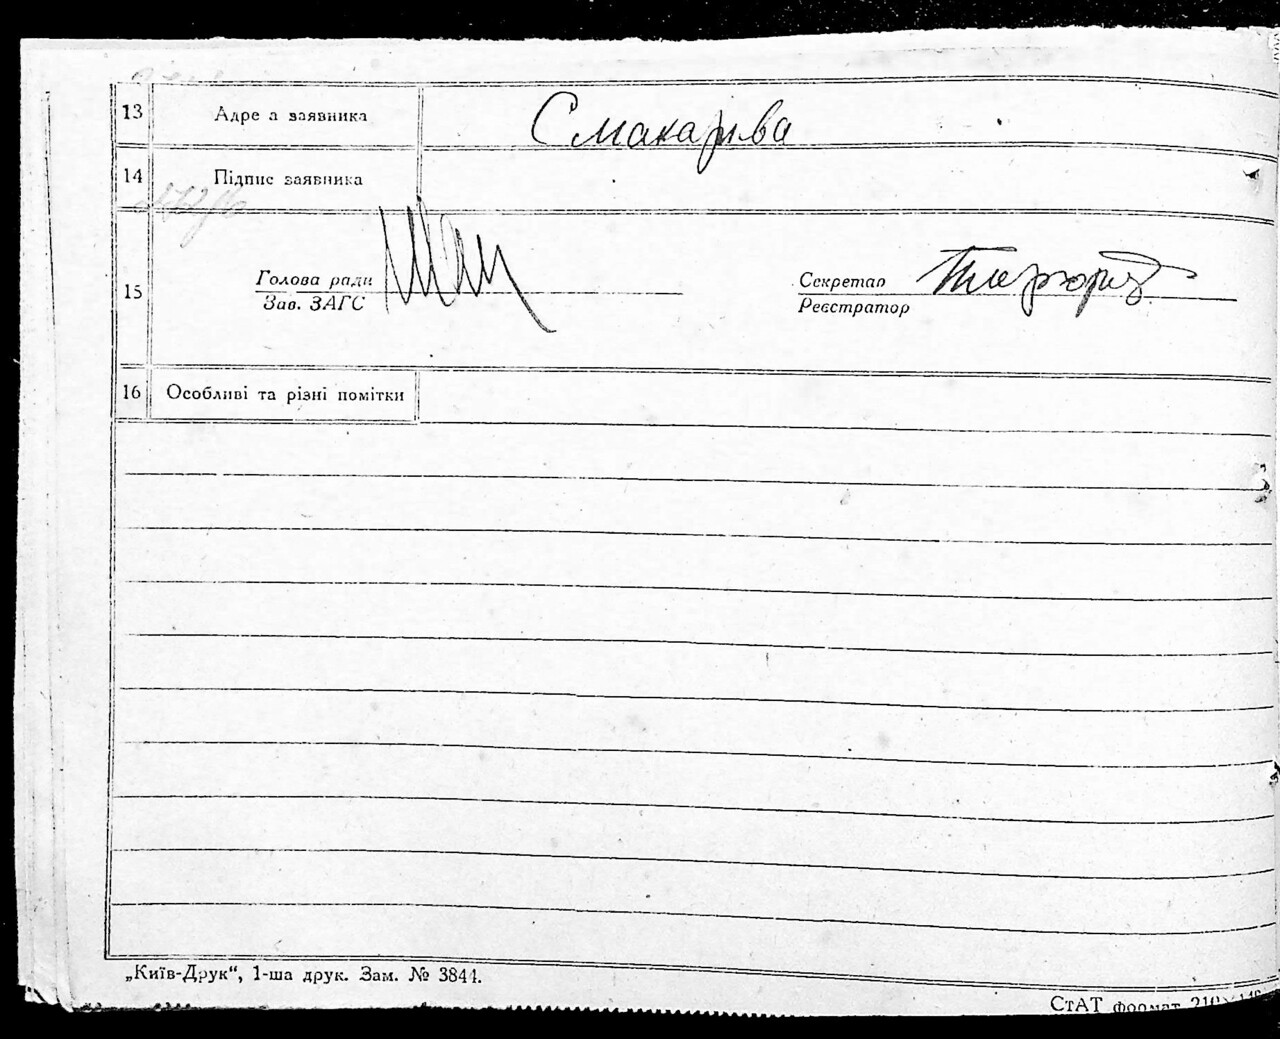 13 Адре а заявника С Макарива
14 Підпис заявника
15 Голова ради
Зав. ЗАГС
Секретар
Реєстратор
16 Особливі та різні помітки
„Київ-Друк“, 1-ша друк. Зам. № 3844.
СтАТ формат 210×148